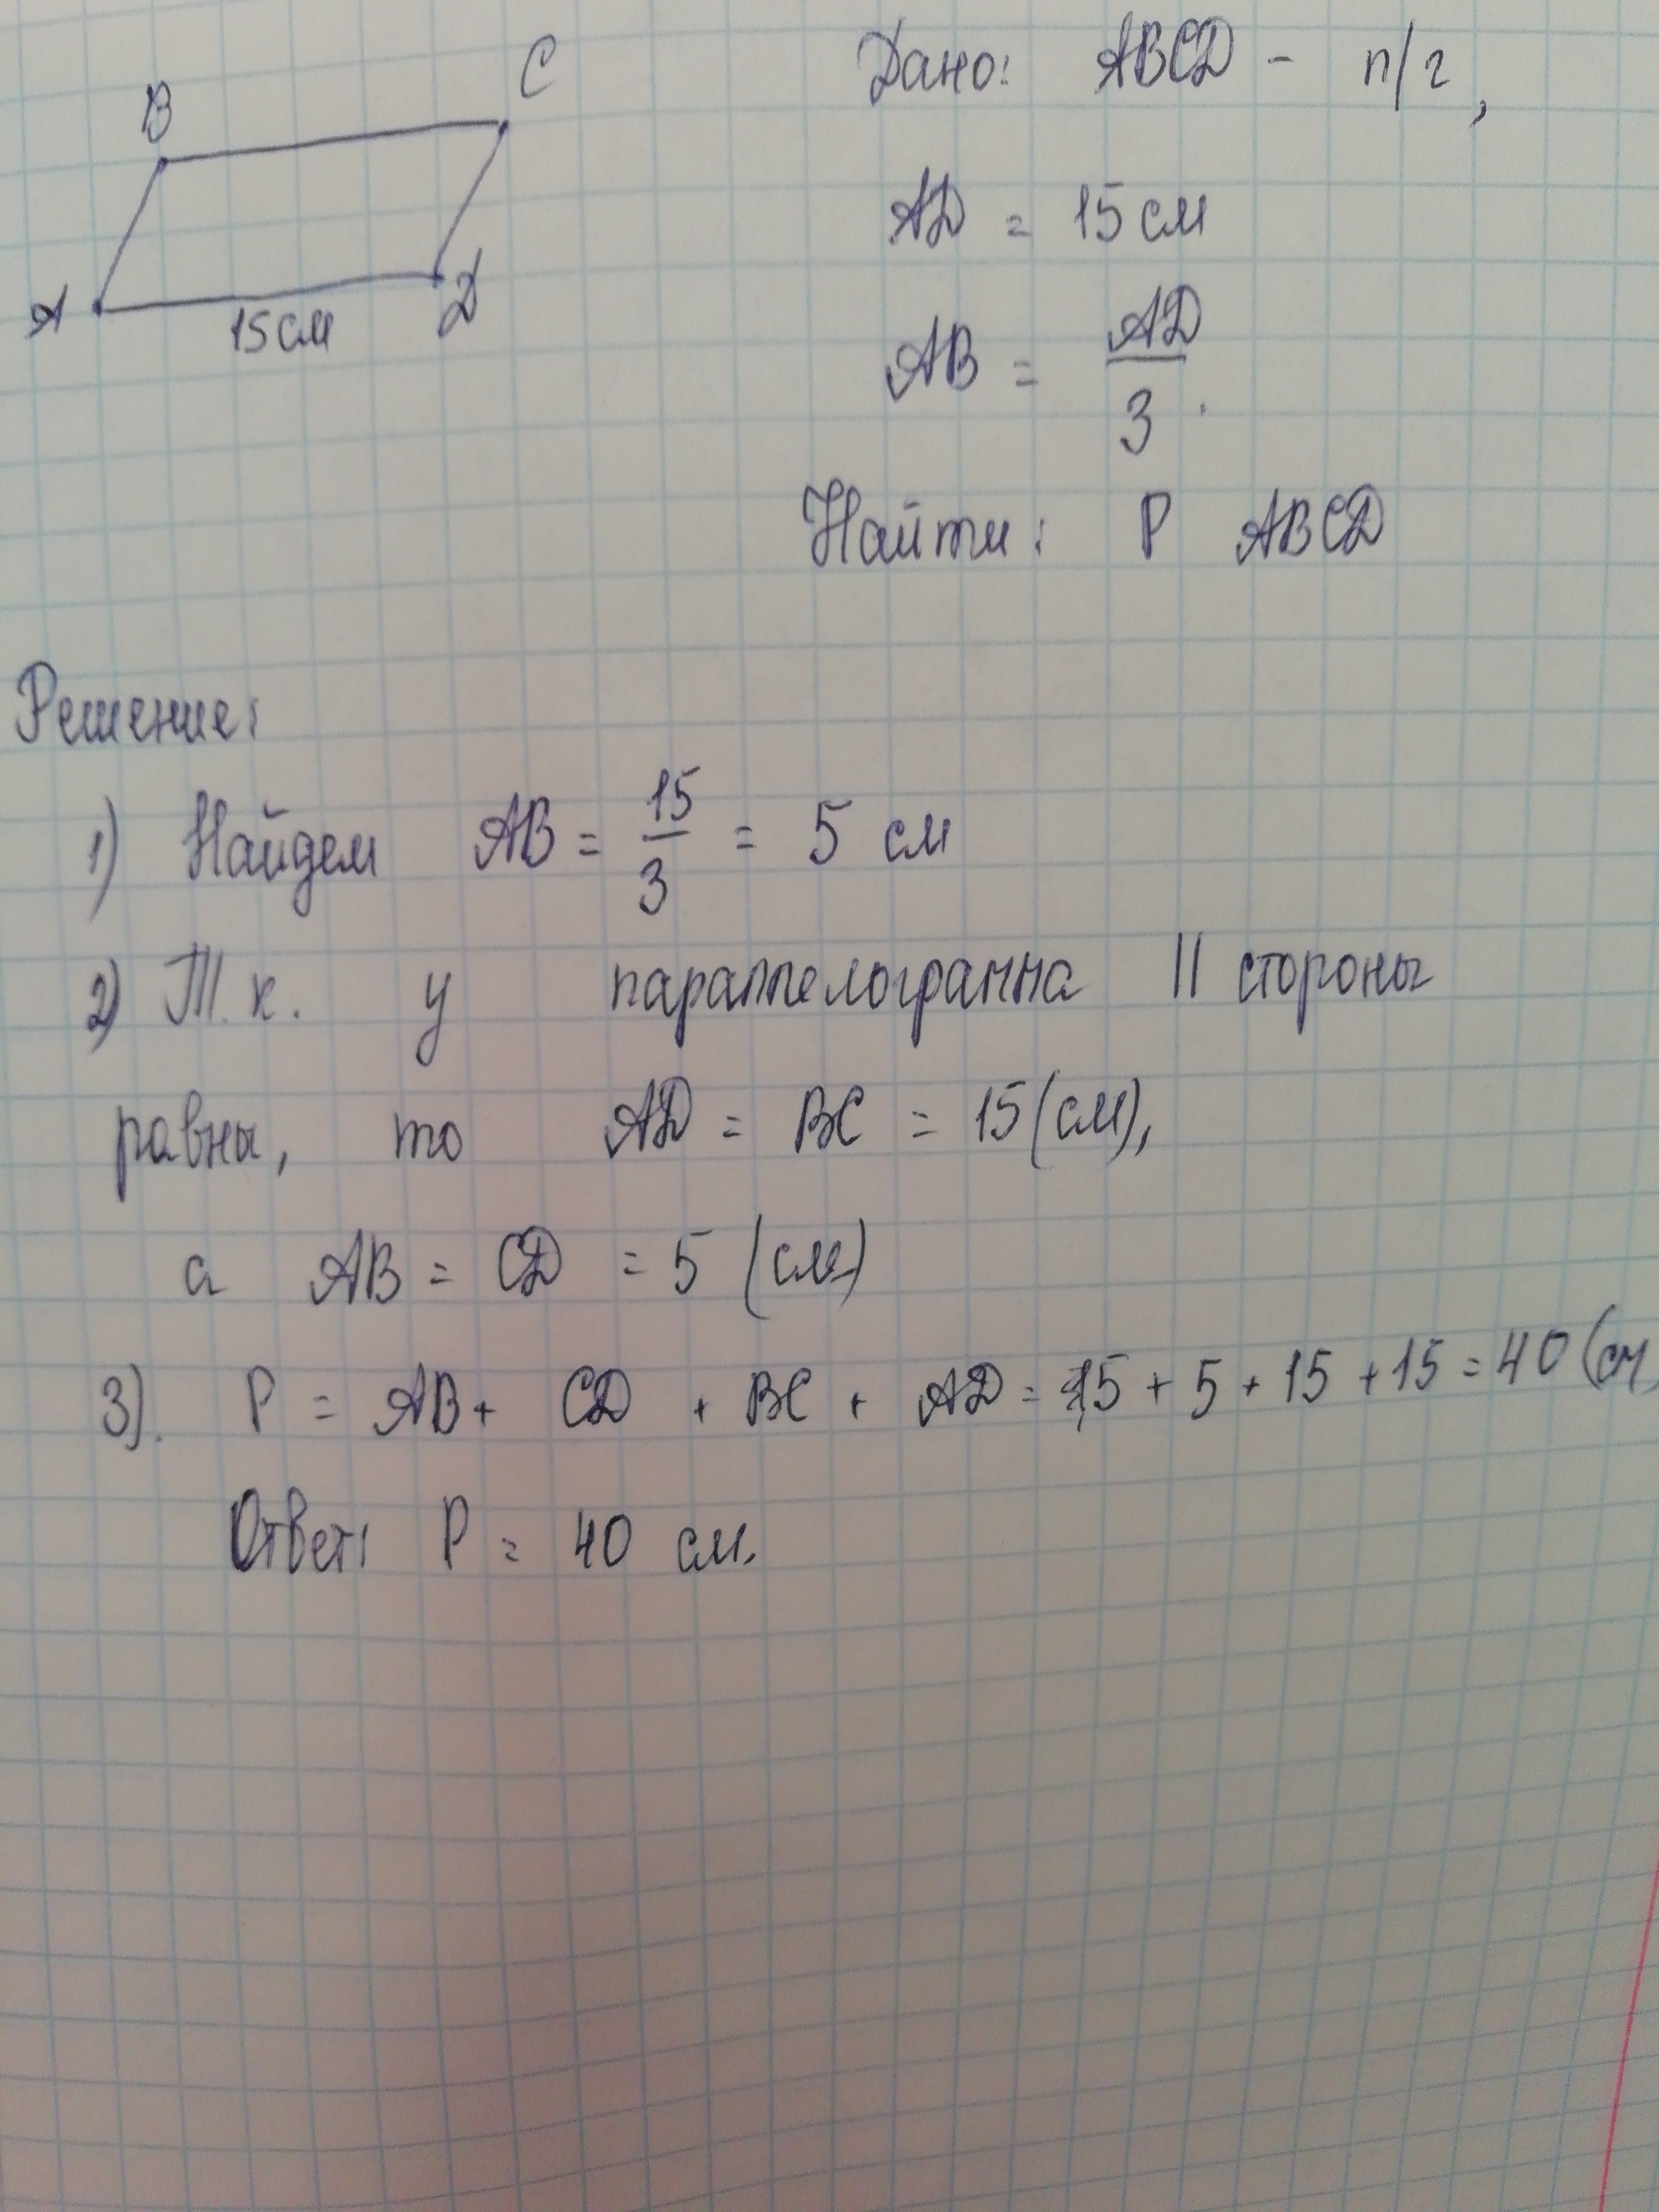 B
C
A
D
15см
Дано: ABCD - п/г,
AD = 15 см
AB = AD/3.
Найти: P ABCD
Решение:
1) Найдем AB = 15/3 = 5 см
2) Т.к. у параллелограмма || стороны
равны, то AD = BC = 15 (см),
а AB = CD = 5 (см)
3). P = AB + CD + BC + AD = 5 + 5 + 15 + 15 = 40 (см
Ответ: P = 40 см.